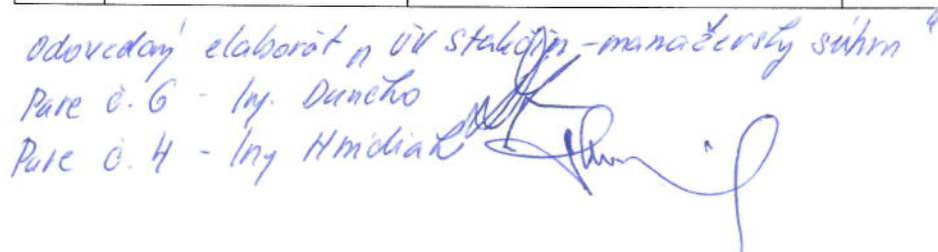 Odovzdaný elaborát „ ÚV Stakčín - manažérsky súhrn "
Pare č. 6 - Ing. Dunčko
Pare č. 4 - Ing Hnidiak